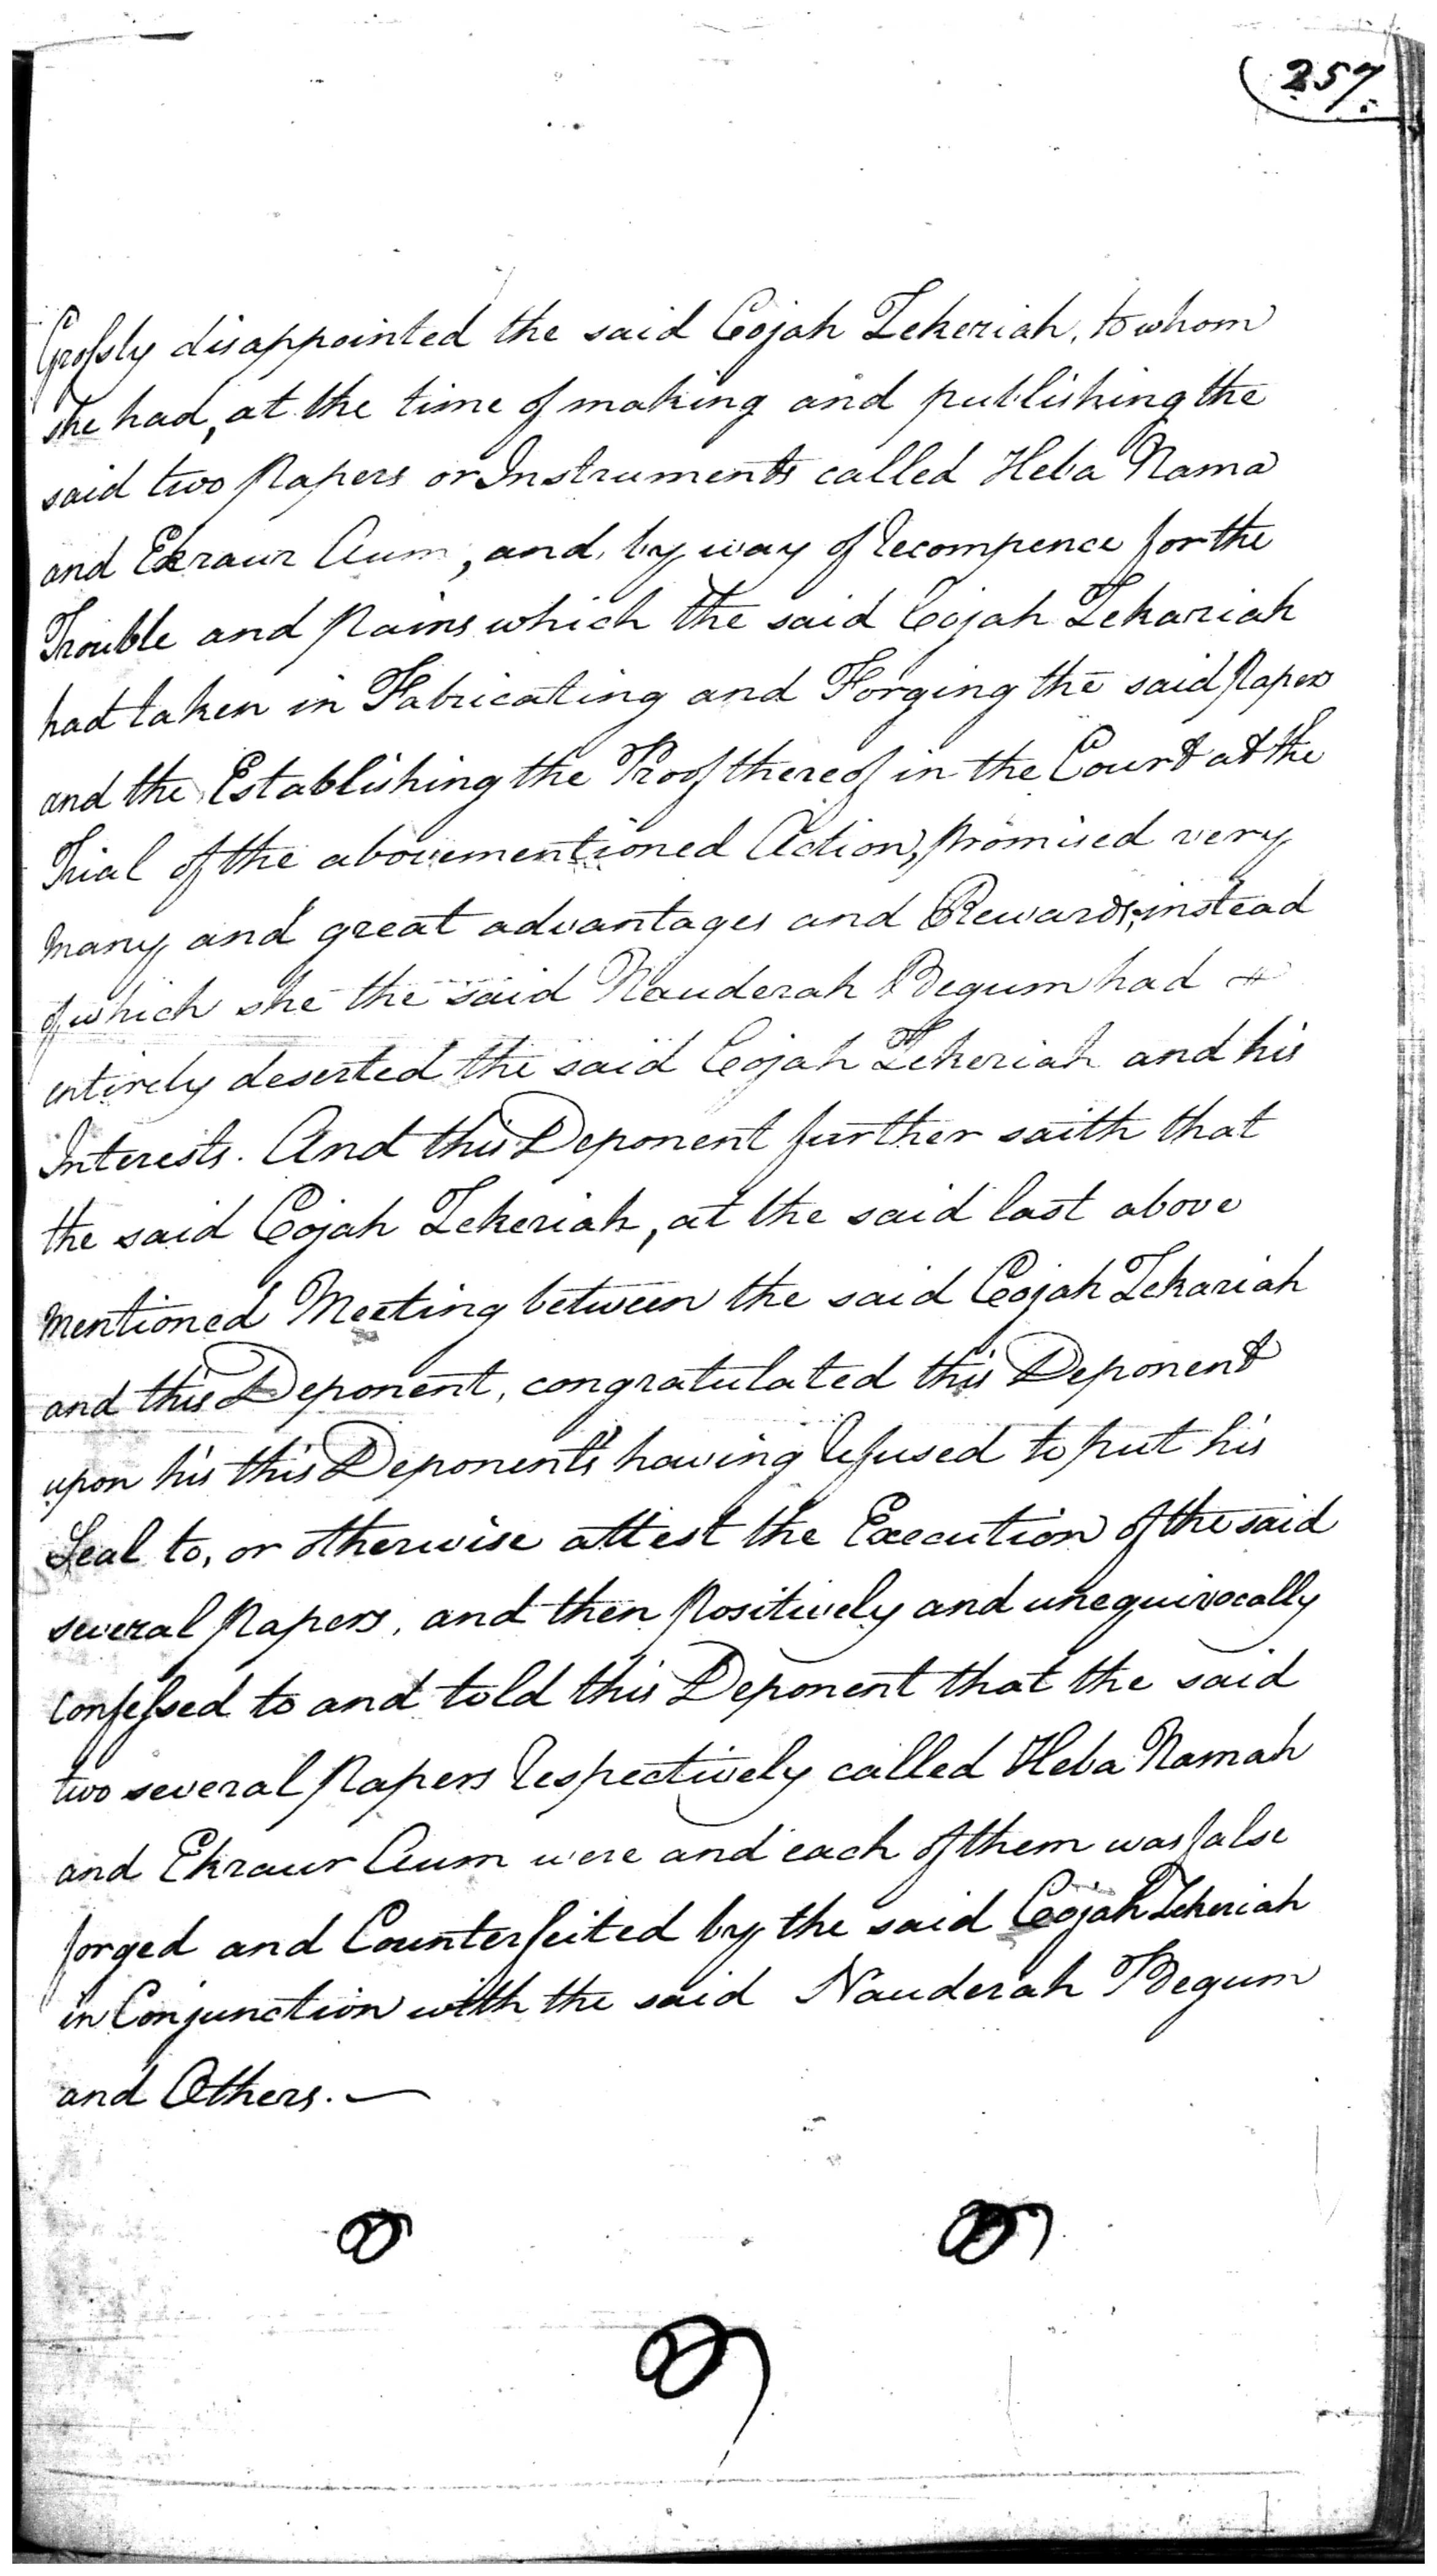 257.
Grossly disappointed the said Cojah Zekeriah, to whom
she had, at the time of making and publishing the
said two Papers or Instruments called Heba Nama
and Ekraur Aum, and, by way of Recompence for the
Trouble and Pains which the said Cojah Zekariah
had taken in Fabricating and Forging the said Papers
and the Establishing the Proof thereof in the Court at the
Trial of the abovementioned Action, promised very
many and great advantages and Rewards, instead
of which she the said Nauderah Begum had
entirely deserted the said Cojah Zekeriah and his
Interests. And this Deponent further saith that
the said Cojah Zekeriah, at the said last above
mentioned Meeting between the said Cojah Zekariah
and this Deponent, congratulated this Deponent
upon his this Deponent's having Refused to put his
Seal to, or otherwise attest the Execution of the said
several Papers, and then Positively and unequivocally
confessed to and told this Deponent that the said
two several Papers Respectively called Heba Namah
and Ekraur Aum were and each of them was false
forged and Counterfeited by the said Cojah Zekeriah
in Conjunction with the said Nauderah Begum
and Others. —